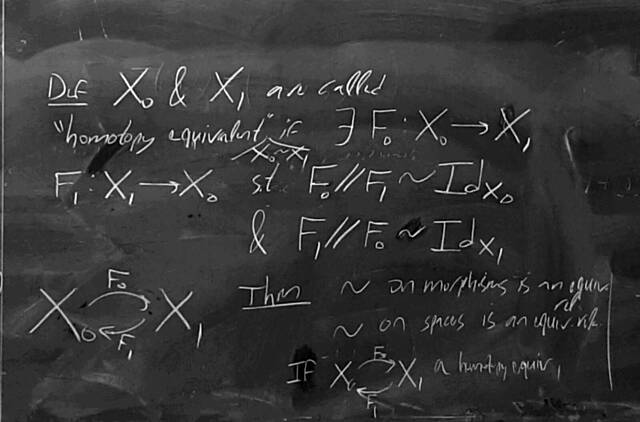 Def X₀ & X₁ are called
"homotopy equivalent" if ∃ F₀ : X₀ → X₁
X₀ ~ X₁
F₁ : X₁ → X₀ s.t. F₀//F₁ ~ Id_X₀
& F₁//F₀ ~ Id_X₁
X₀ F₀ F₁ X₁
Thm ~ on morphisms is an equiv. rel
~ on spaces is an equiv. rel.
IF X₀ F₀ F₁ X₁ a homotopy equiv,